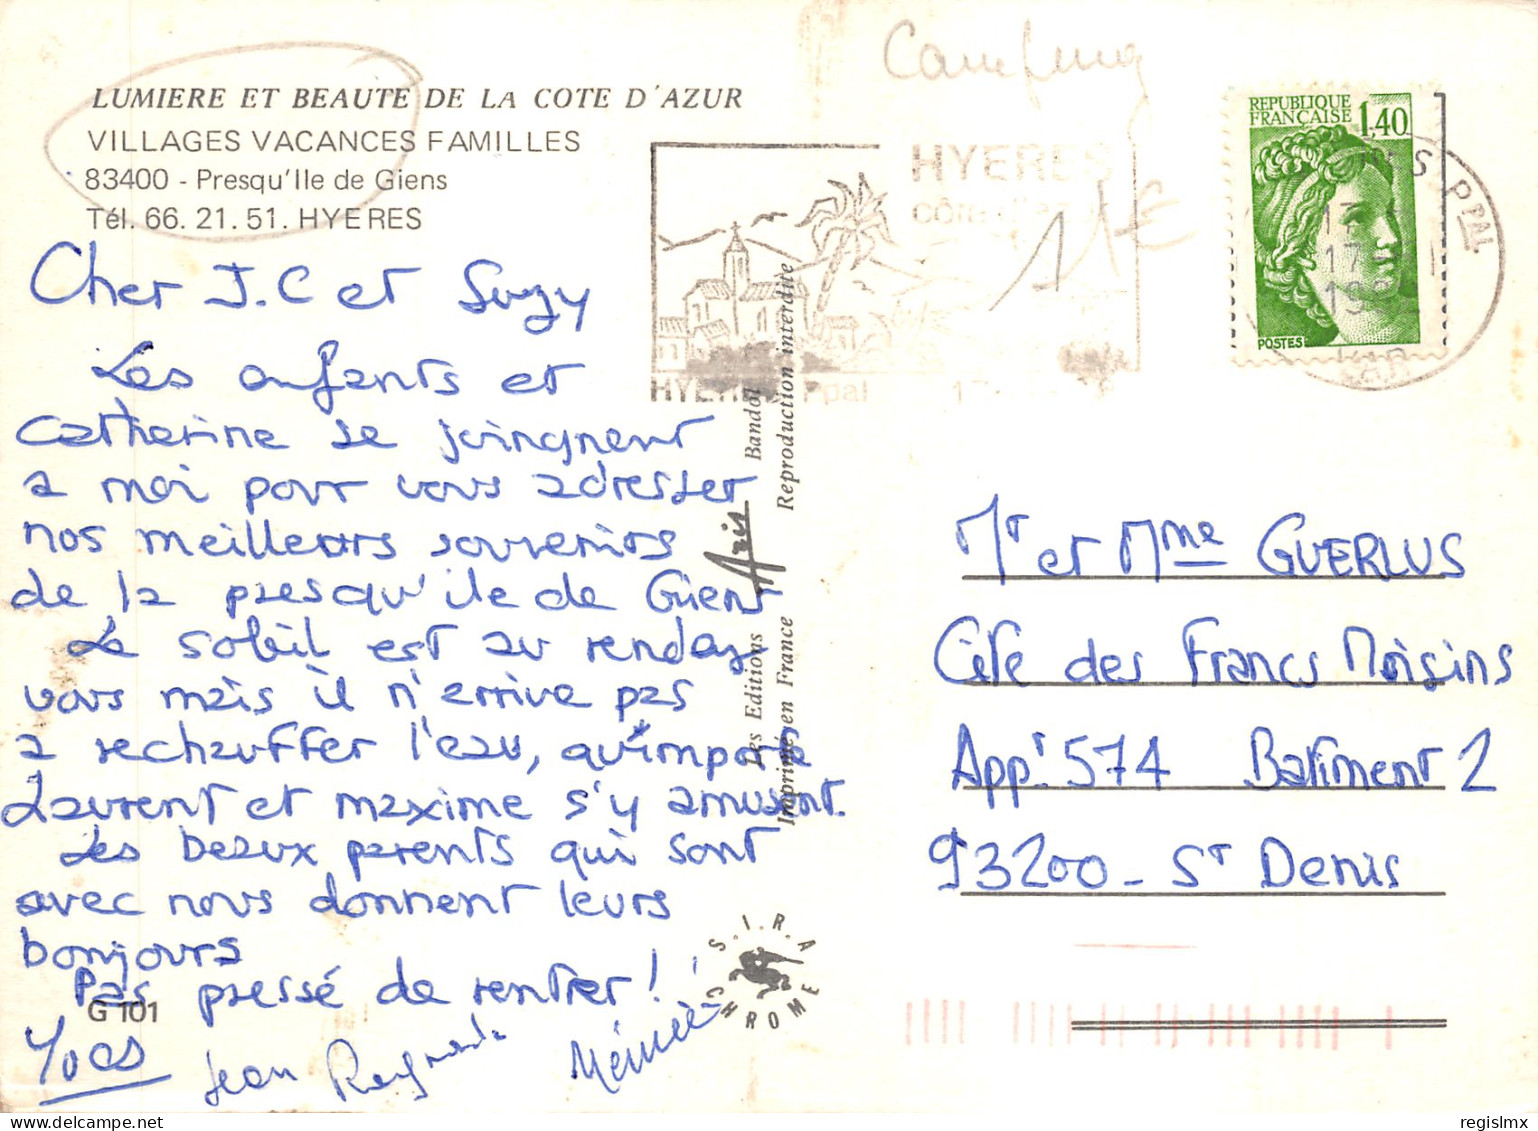 LUMIERE ET BEAUTE DE LA COTE D'AZUR
VILLAGES VACANCES FAMILLES
83400 - Presqu'Ile de Giens
Tél. 66.21.51. HYERES
Cher J.C et Suzy
Les enfants et
Catherine se joingnent
a moi pour vous adresser
nos meilleurs souvenirs
de la presqu'ile de Giens
Le soleil est au rendez
vous mais il n'arrive pas
a rechauffer l'eau, qu'importe
Laurent et maxime s'y amusent.
Les beaux parents qui sont
avec nous donnent leurs
bonjours
Pas pressé de rentrer !
G 101
Yves
Jean
Les Editions Aris Bandol
Imprimé en France Reproduction interdite
S.I.R.A
CHROME
Camping
HYERES
11€
HYERES Ppal
REPUBLIQUE
FRANÇAISE 1,40
POSTES
Mr et Mme GUERLUS
Cité des Francs Moisins
Appt 574 Batiment 2
93200 - St Denis
regislmx